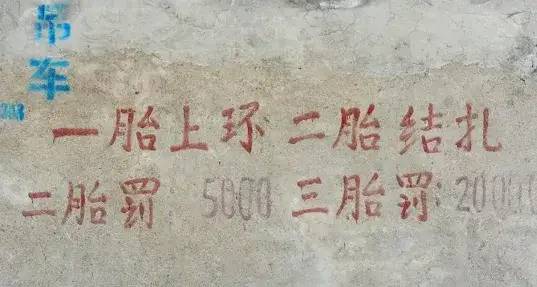 吊车
一胎上环 二胎结扎
二胎罚 5000 三胎罚:20000